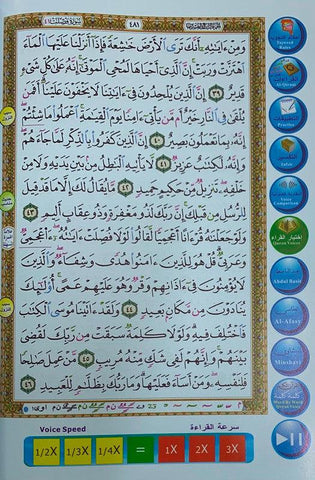 سورة فصلت ٤١
٤٨١
وَمِنْ ءَايَٰتِهِۦٓ أَنَّكَ تَرَى ٱلْأَرْضَ خَٰشِعَةً فَإِذَآ أَنزَلْنَا عَلَيْهَا ٱلْمَآءَ
ٱهْتَزَّتْ وَرَبَتْ ۚ إِنَّ ٱلَّذِىٓ أَحْيَاهَا لَمُحْىِ ٱلْمَوْتَىٰٓ ۚ إِنَّهُۥ عَلَىٰ كُلِّ شَىْءٍ
قَدِيرٌ ٣٩ إِنَّ ٱلَّذِينَ يُلْحِدُونَ فِىٓ ءَايَٰتِنَا لَا يَخْفَوْنَ عَلَيْنَآ ۗ أَفَمَن
يُلْقَىٰ فِى ٱلنَّارِ خَيْرٌ أَم مَّن يَأْتِىٓ ءَامِنًا يَوْمَ ٱلْقِيَٰمَةِ ۚ ٱعْمَلُوا۟ مَا شِئْتُمْ ۖ
إِنَّهُۥ بِمَا تَعْمَلُونَ بَصِيرٌ ٤٠ إِنَّ ٱلَّذِينَ كَفَرُوا۟ بِٱلذِّكْرِ لَمَّا جَآءَهُمْ ۖ
وَإِنَّهُۥ لَكِتَٰبٌ عَزِيزٌ ٤١ لَّا يَأْتِيهِ ٱلْبَٰطِلُ مِنۢ بَيْنِ يَدَيْهِ وَلَا مِنْ
خَلْفِهِۦ ۖ تَنزِيلٌ مِّنْ حَكِيمٍ حَمِيدٍ ٤٢ مَّا يُقَالُ لَكَ إِلَّا مَا قَدْ قِيلَ
لِلرُّسُلِ مِن قَبْلِكَ ۚ إِنَّ رَبَّكَ لَذُو مَغْفِرَةٍ وَذُو عِقَابٍ أَلِيمٍ ٤٣
وَلَوْ جَعَلْنَٰهُ قُرْءَانًا أَعْجَمِيًّا لَّقَالُوا۟ لَوْلَا فُصِّلَتْ ءَايَٰتُهُۥٓ ۖ ءَا۬عْجَمِىٌّ
وَعَرَبِىٌّ ۗ قُلْ هُوَ لِلَّذِينَ ءَامَنُوا۟ هُدًى وَشِفَآءٌ ۖ وَٱلَّذِينَ
لَا يُؤْمِنُونَ فِىٓ ءَاذَانِهِمْ وَقْرٌ وَهُوَ عَلَيْهِمْ عَمًى ۚ أُو۟لَٰٓئِكَ
يُنَادَوْنَ مِن مَّكَانٍۭ بَعِيدٍ ٤٤ وَلَقَدْ ءَاتَيْنَا مُوسَى ٱلْكِتَٰبَ
فَٱخْتُلِفَ فِيهِ ۗ وَلَوْلَا كَلِمَةٌ سَبَقَتْ مِن رَّبِّكَ لَقُضِىَ
بَيْنَهُمْ ۚ وَإِنَّهُمْ لَفِى شَكٍّ مِّنْهُ مُرِيبٍ ٤٥ مَّنْ عَمِلَ صَٰلِحًا
فَلِنَفْسِهِۦ ۖ وَمَنْ أَسَآءَ فَعَلَيْهَا ۗ وَمَا رَبُّكَ بِظَلَّٰمٍ لِّلْعَبِيدِ ٤٦
Tajweed
Rules
Al-Qurani
Practice
Tafsir
Voice
Comparison
إختيار القراء
Quran Voices
Abdul Basit
Al-Afasy
Minshawi
كلمة كلمة
Word By Word
Quran Voice
Voice Speed
سرعة القراءة
1/2X
1/3X
1/4X
=
1X
2X
3X